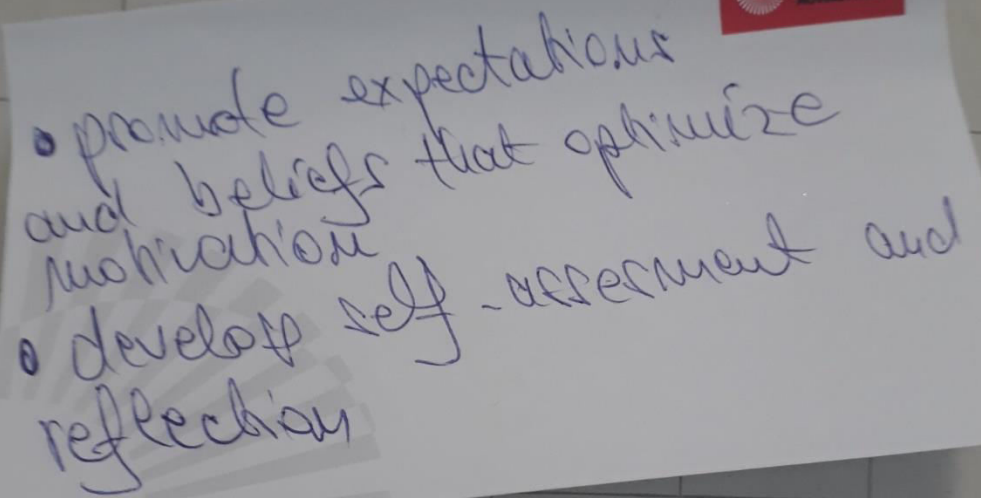 • promote expectations
and beliefs that optimize
motivation
• develop self-assesment and
reflection